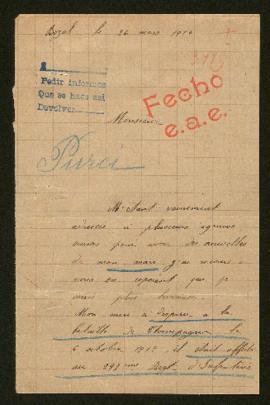 Bozel le 26 mars 1916
Pedir informes
Que se hace así
Devolver
Fecho
e.a.e.
Monsieur
M'étant vainement
adressée à plusieurs agences
pour avoir des nouvelles
de mon mari j'ai recours à
vous en espérant que je
serais plus heureuse
Mon mari a disparu à la
bataille de Champagne le
6 octobre 1915 il était affecté
au 298ème Régt d'Infanterie